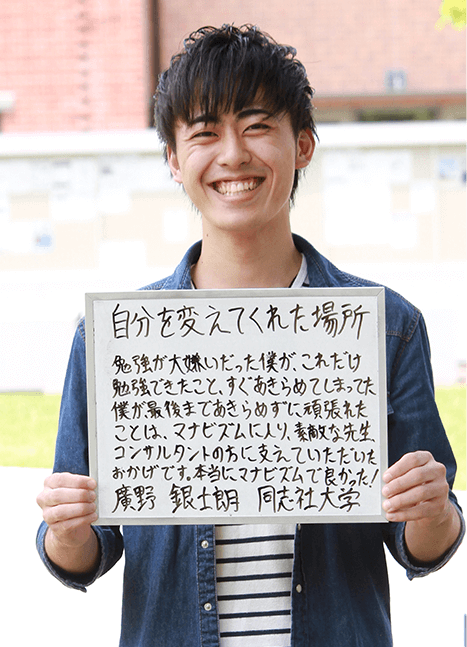 自分を変えてくれた場所
勉強が大嫌いだった僕が、これだけ
勉強できたこと、すぐあきらめてしまってた
僕が最後まであきらめずに頑張れた
ことは、マナビズムに入り、素敵な先生、
コンサルタントの方に支えていただいた
おかげです。本当にマナビズムで良かった!
廣野 銀士朗 同志社大学